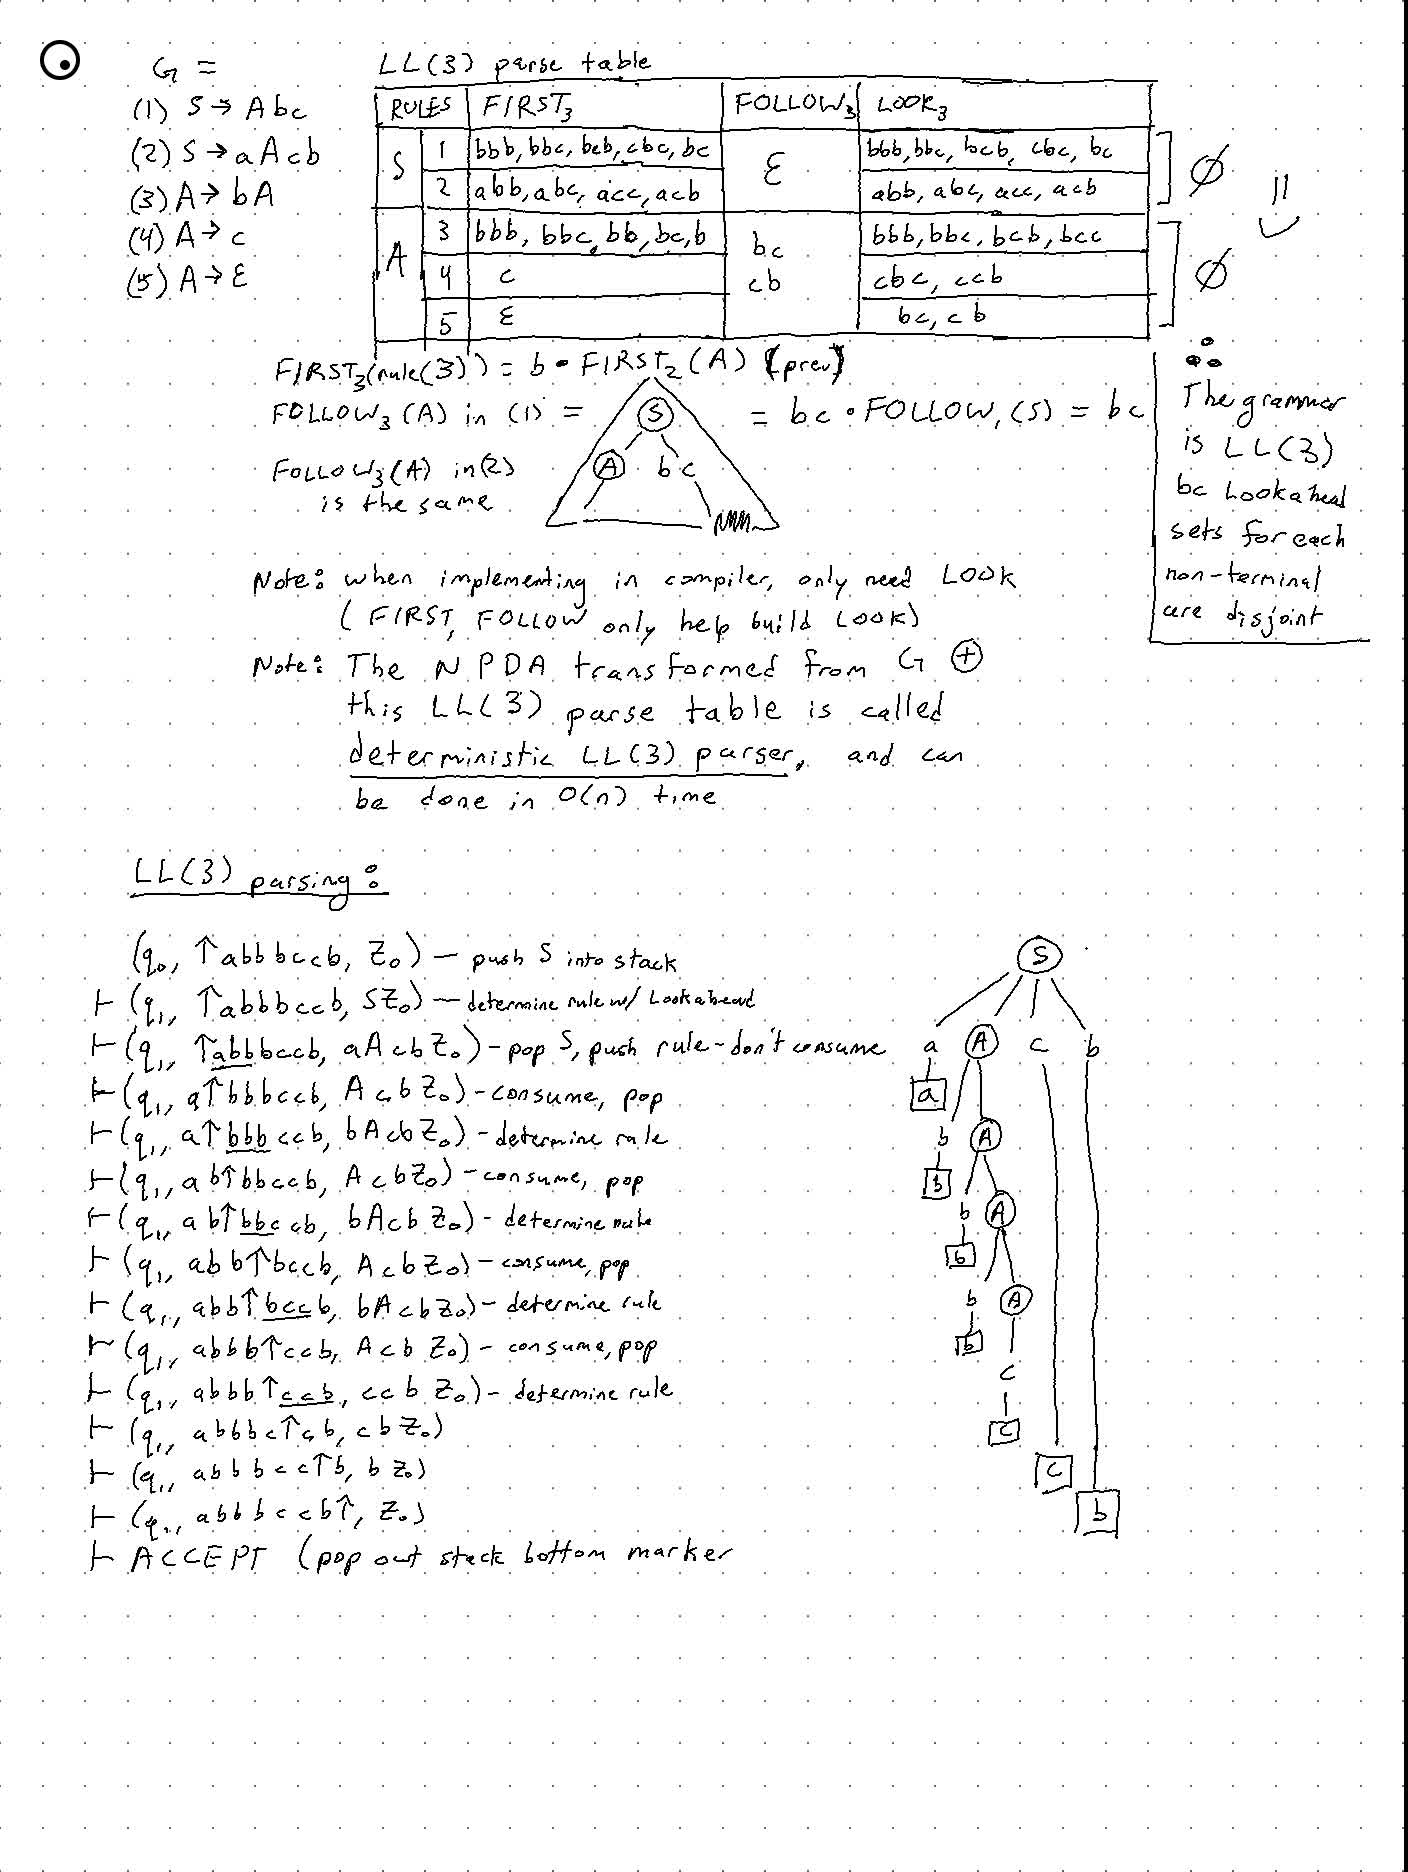 G =
(1) S → Abc
(2) S → aAcb
(3) A → bA
(4) A → c
(5) A → ε
LL(3) parse table
RULES FIRST₃ FOLLOW₃ LOOK₃
S 1 bbb, bbc, bcb, cbc, bc ε bbb, bbc, bcb, cbc, bc ∅
2 abb, abc, acc, acb abb, abc, acc, acb
A 3 bbb, bbc, bb, bc, b bc bbb, bbc, bcb, bcc ∅
4 c cb cbc, ccb
5 ε bc, cb
FIRST₃(rule(3)) = b • FIRST₂(A) (prev)
FOLLOW₃(A) in (1) = S A b c = bc • FOLLOW₁(S) = bc
FOLLOW₃(A) in (2)
is the same
∴
The grammar
is LL(3)
bc Lookahead
sets for each
non-terminal
are disjoint
Note: when implementing in compiler, only need LOOK
(FIRST, FOLLOW only help build LOOK)
Note: The NPDA transformed from G ⊕
this LL(3) parse table is called
deterministic LL(3) parser, and can
be done in O(n) time
LL(3) parsing:
(q₀, ↑abbbccb, Z₀) – push S into stack
⊢ (q₁, ↑abbbccb, SZ₀) – determine rule w/ Lookahead
⊢ (q₁, ↑abbbccb, aAcbZ₀) – pop S, push rule – don't consume
⊢ (q₁, a↑bbbccb, AcbZ₀) – consume, pop
⊢ (q₁, a↑bbbccb, bAcbZ₀) – determine rule
⊢ (q₁, ab↑bbccb, AcbZ₀) – consume, pop
⊢ (q₁, ab↑bbccb, bAcbZ₀) – determine rule
⊢ (q₁, abb↑bccb, AcbZ₀) – consume, pop
⊢ (q₁, abb↑bccb, bAcbZ₀) – determine rule
⊢ (q₁, abbb↑ccb, AcbZ₀) – consume, pop
⊢ (q₁, abbb↑ccb, ccbZ₀) – determine rule
⊢ (q₁, abbbc↑cb, cbZ₀)
⊢ (q₁, abbbcc↑b, bZ₀)
⊢ (q₁, abbbccb↑, Z₀)
⊢ ACCEPT (pop out stack bottom marker
S
a A c b
a
b A
b
b A
b
b A
b
c
c
c
b